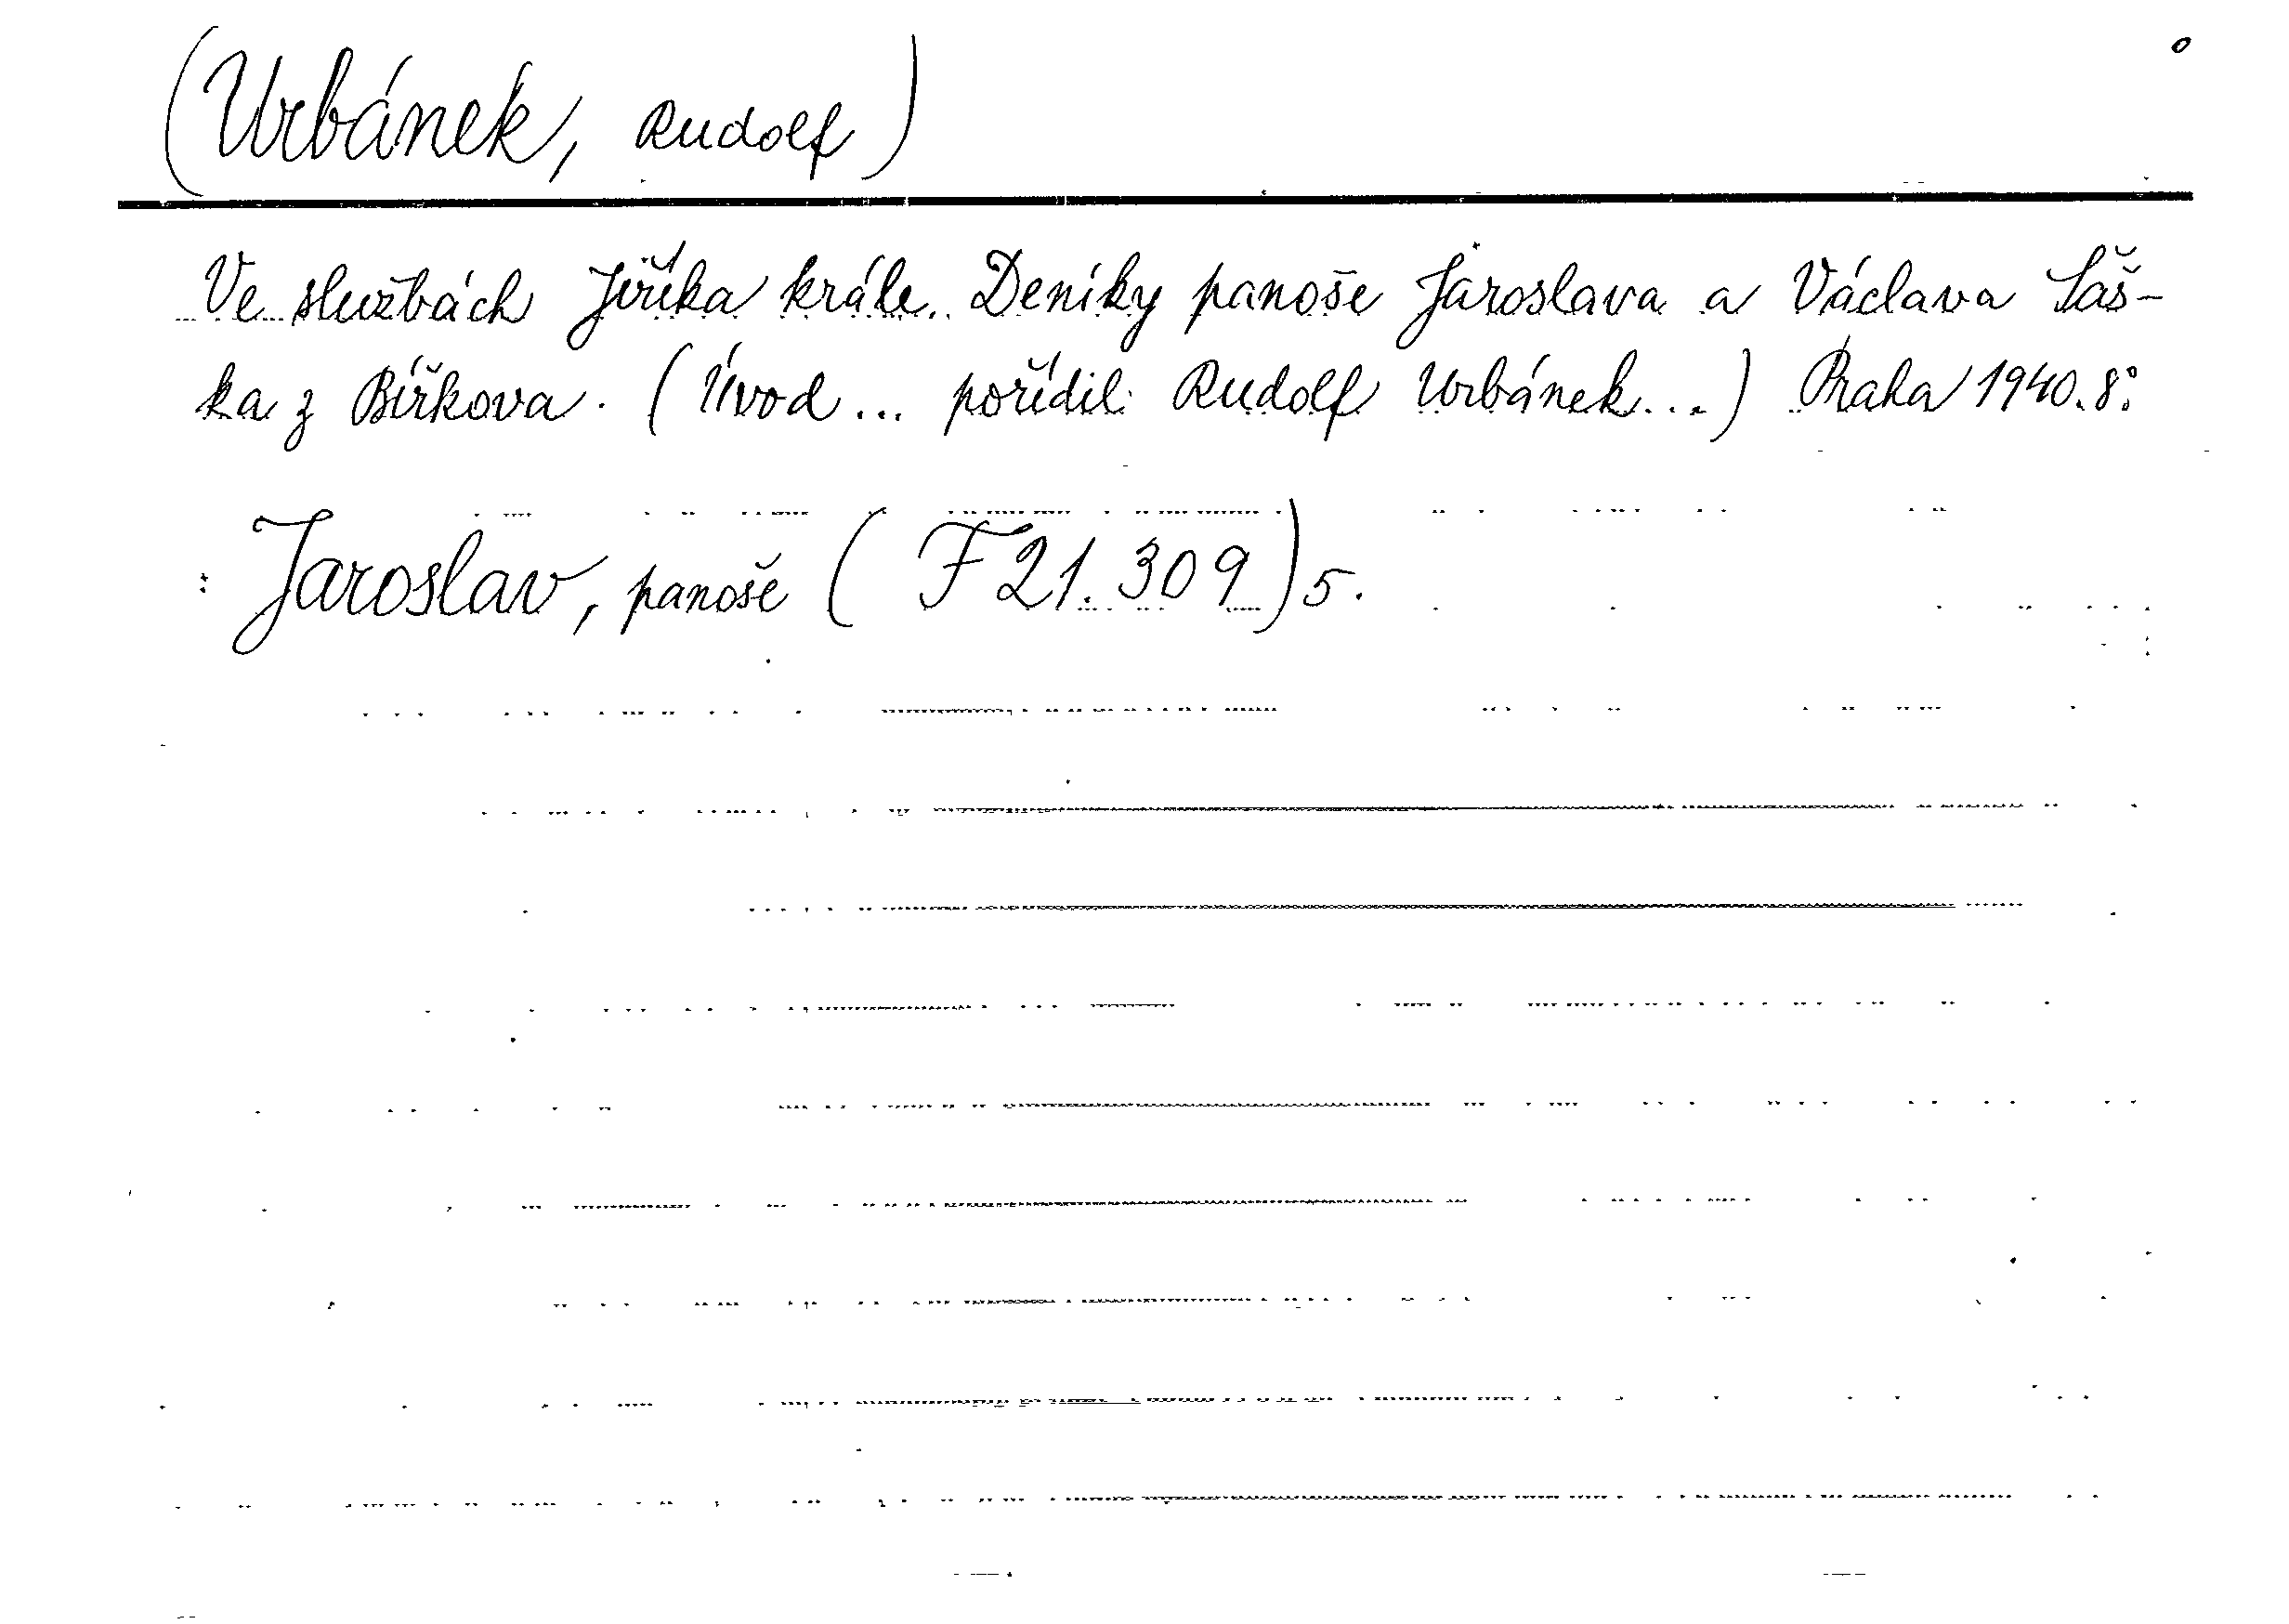 (Urbánek, Rudolf)
Ve službách Jiříka krále. Deníky panoše Jaroslava a Václava Šaš-
ka z Bířkova. (Úvod... pořídil Rudolf Urbánek...) Praha 1940. 8°.
: Jaroslav, panoše (F 21.309) 5.